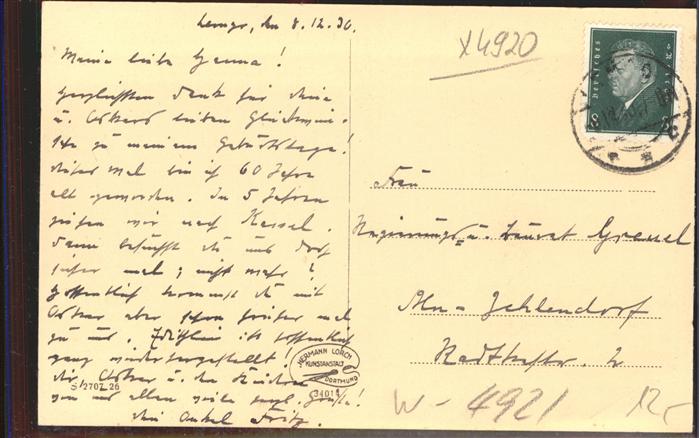 Lemgo, den 8.12.30.
Meine liebe Emma!
Herzlichsten Dank für Deine
u. Oskars lieben Glückwün-
sche zu meinem Geburtstage!
Dieses mal bin ich 60 Jahre
alt geworden. In 5 Jahren
ziehen wir nach Kassel.
Dann besuchst Du uns dort
sicher mal; nicht wahr?
Hoffentlich kommst Du mit
Oskar aber schon früher mal
zu uns. ist hoffentlich
ganz wiederhergestellt!
Dir, Oskar u. den Kindern
von uns allen viele herzl. Grüße!
Dein Onkel Fritz.
X4920
Deutsches Reich
8
Frau
Regierungs u. Baurat
Bln-Zehlendorf
HERMANN LORCH
KUNSTANSTALT
DORTMUND
34014
S/2707 26
W-4921
12,-